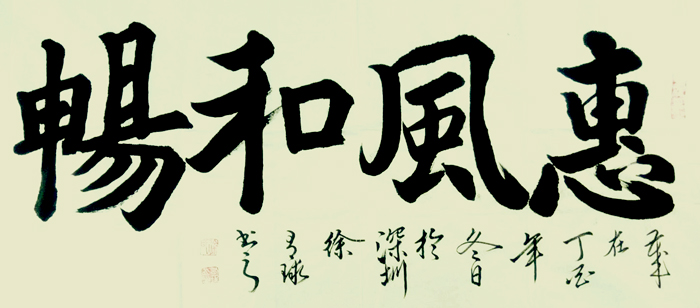 惠風和暢
歲在丁酉年冬日於深圳徐 球書